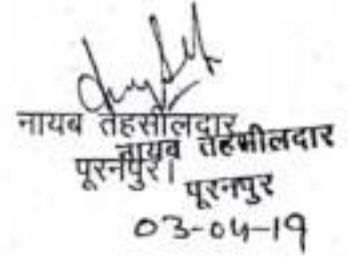 नायब तहसीलदार
नायब तहसीलदार
पूरनपुर।
पूरनपुर
03-04-19